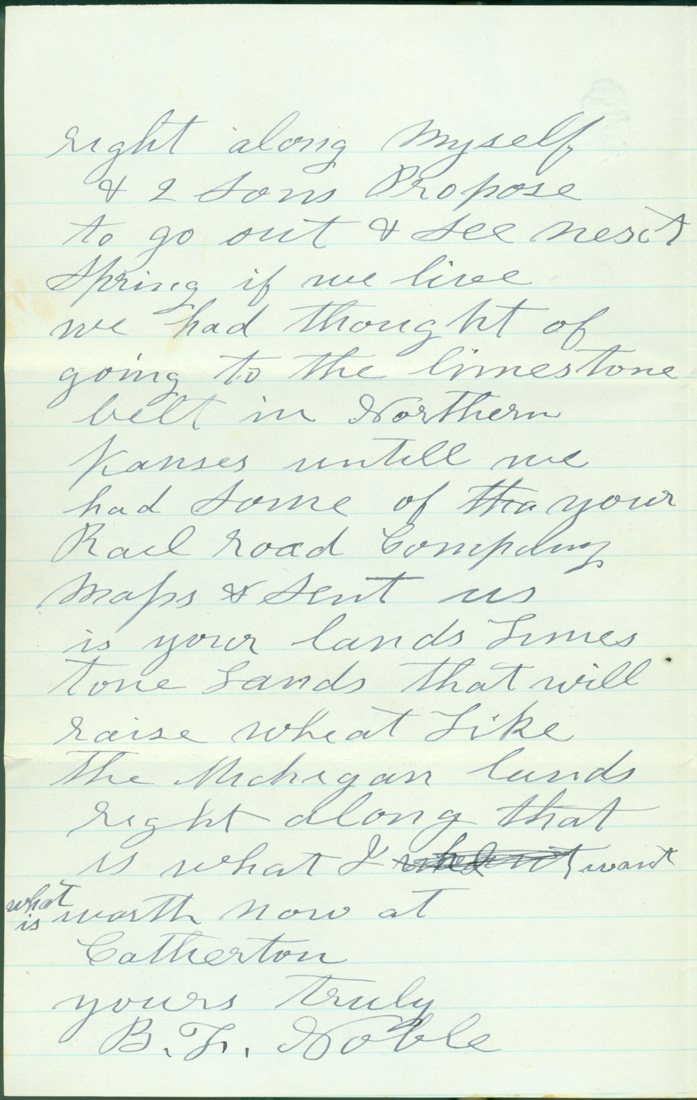 right along Myself
& 2 Sons Propose
to go out & See next
Spring if we live
we had thought of
going to the limestone
belt in Northern
Kanses untill we
had Some of tha your
Rail road Company
Maps & Sent us
is your lands Limes
tone Lands that will
raise wheat Like
the Michigan lands
right along that
is what I want
what is warth now at
Catherton
yours truly
B. F. Noble